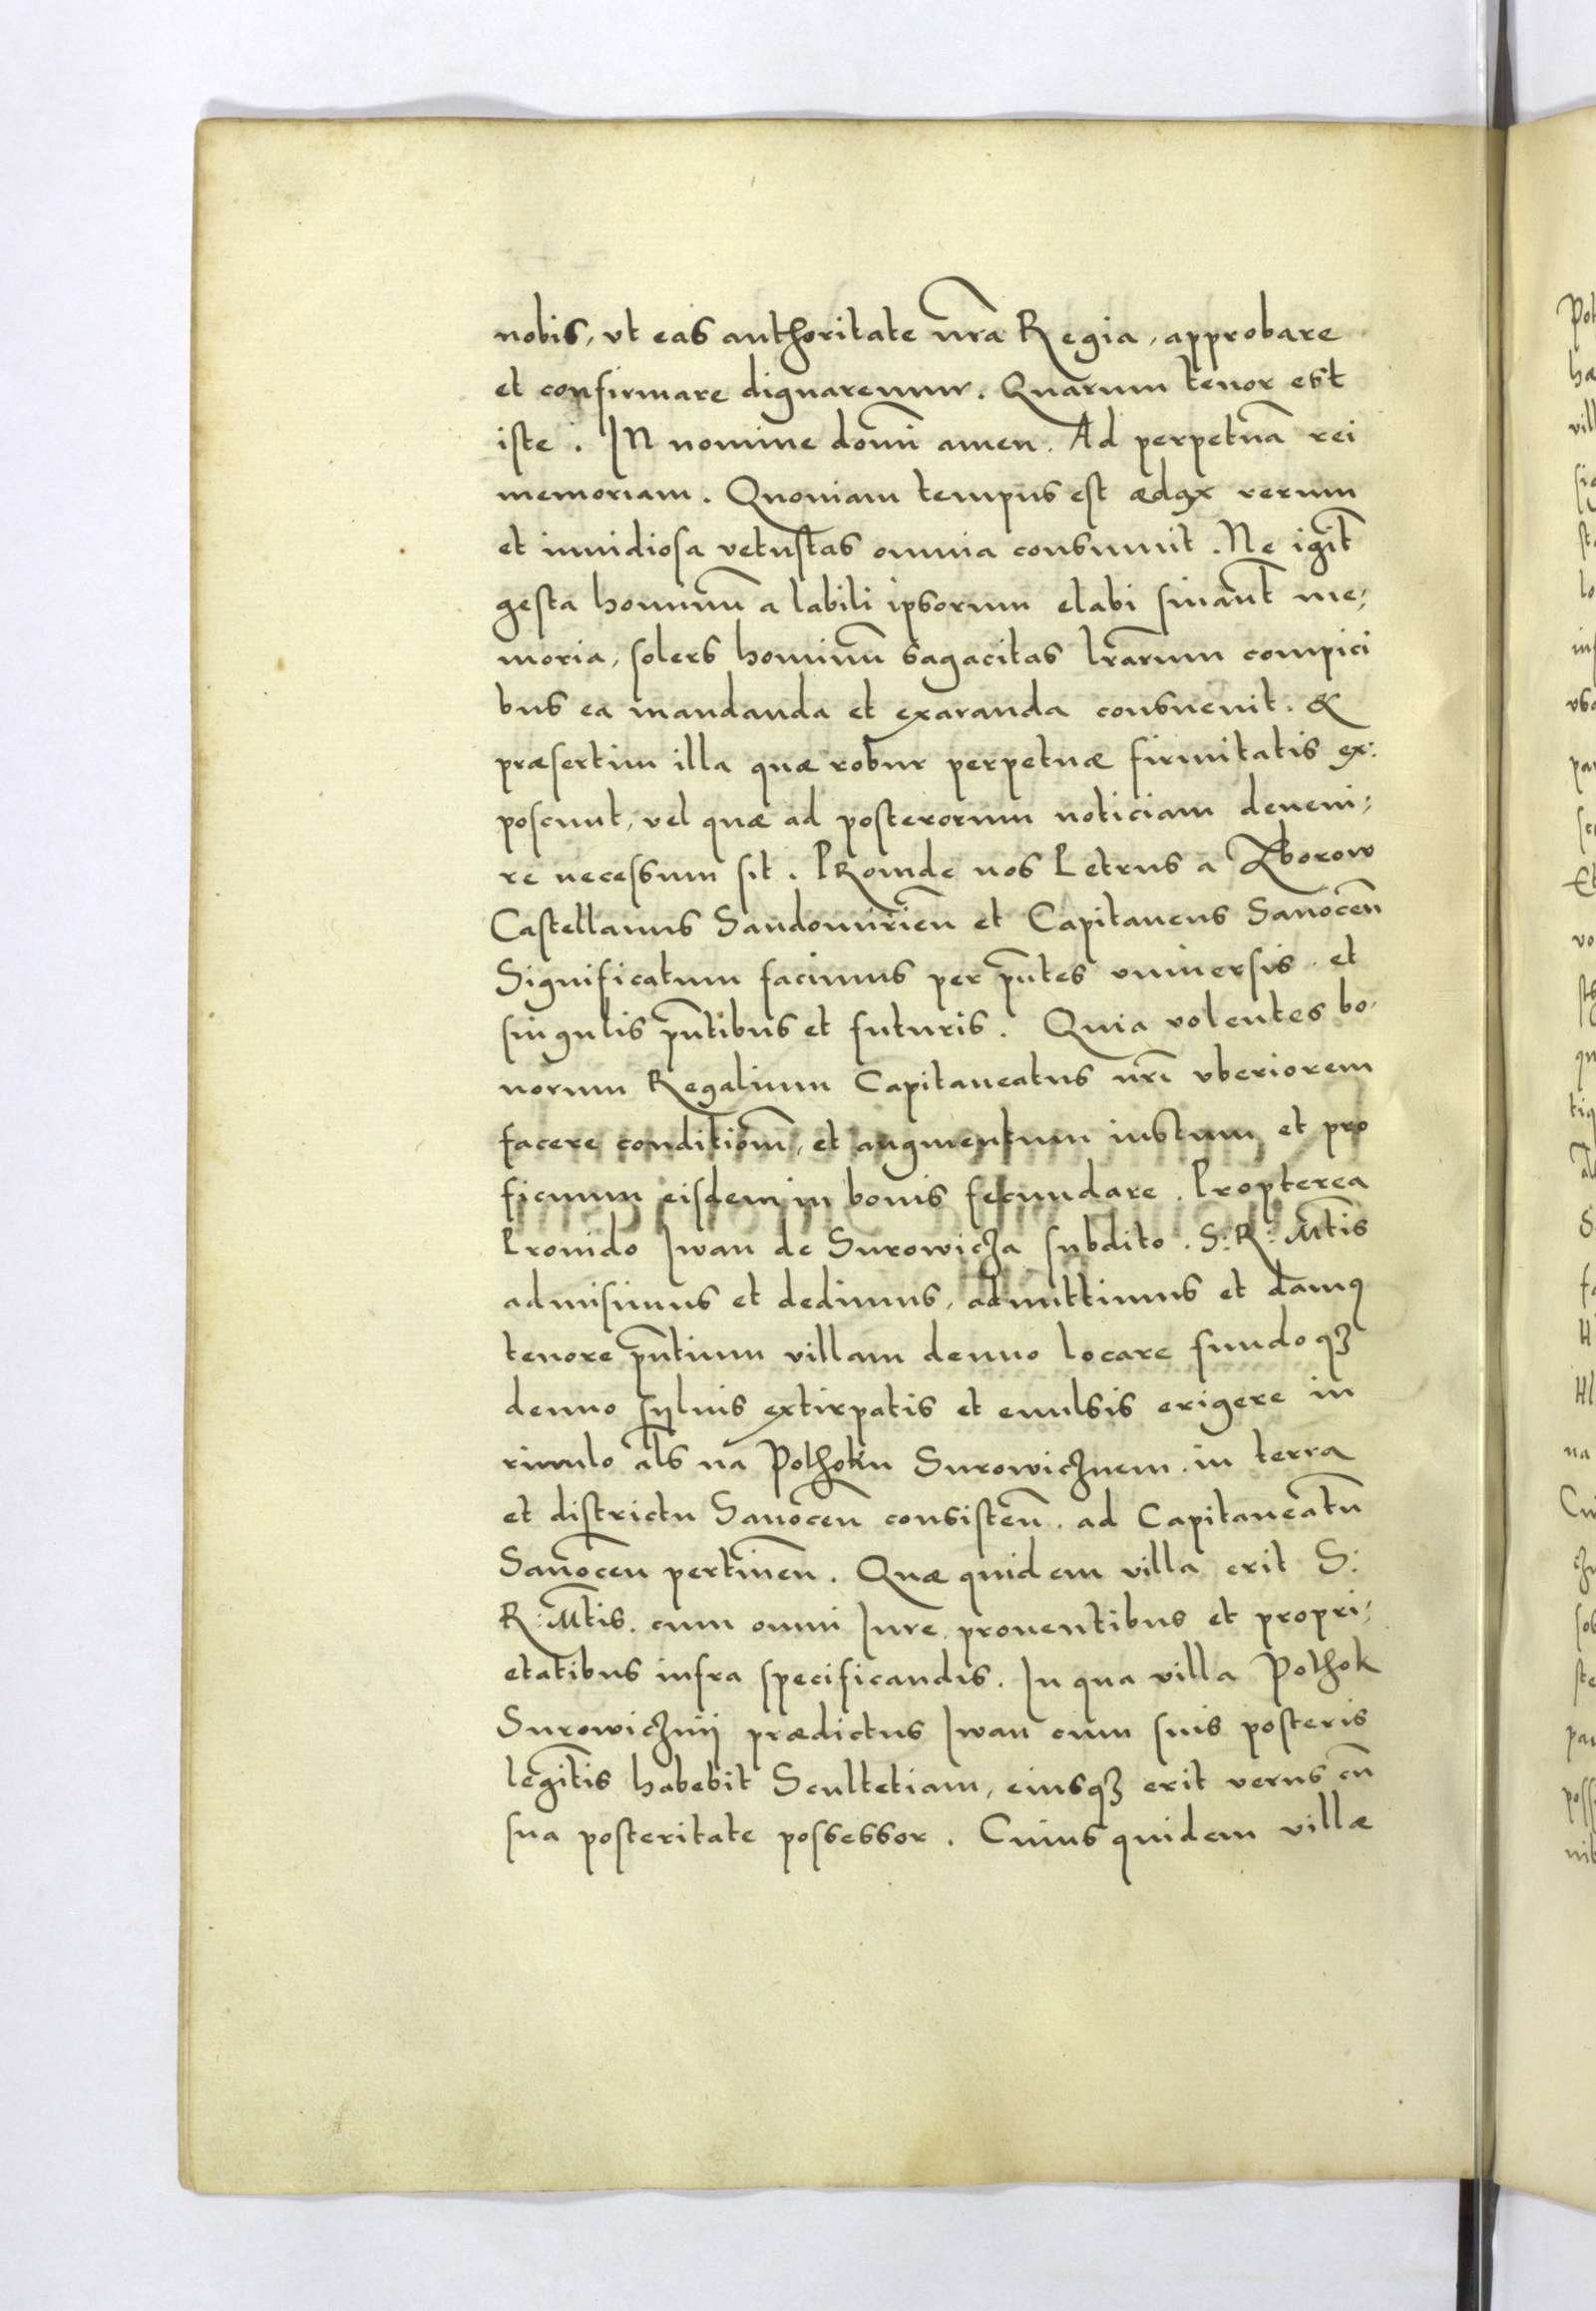 nobis, vt eas authoritate nr̃a Regia, approbare
et confirmare dignaremur. Quarum tenor est
iste. IN nomine domĩ amen. Ad perpetuã rei
memoriam. Quoniam tempus est ædax rerum
et inuidiosa vetustas omnia consumit. Ne igit̃
gesta hominũ a labili ipsorum elabi sinant̃ me,
moria, solers hominũ sagacitas lr̃arum compici
bus ea mandanda et exaranda consueuit. &
præsertim illa quæ robur perpetuæ firmitatis ex:
poscunt, vel quæ ad posterorum noticiam deueni,
re necessum sit. PRoinde nos Petrus a Zborow
Castellanus Sandomirieñ et Capitaneus Sanoceñ
Significatum facimus per pñtes vniuersis et
singulis pñtibus et futuris. Quia volentes bo,
norum Regalium Capitaneatus nrĩ vberiorem
facere conditionẽ, et augmentum iustum et pro
ficuum eisdem in bonis fecundare. Propterea
Prouido Iwan de Surowicza subdito. S: R: Mtis
admisimus et dedimus, admittimus et damꝰ
tenore pñtium villam denuo locare fundoqꝫ
denuo syluis extirpatis et euulsis erigere in
riuulo als na Pothoku Surowicznem. in terra
et districtu Sanoceñ consisteñ. ad Capitaneatũ
Sanoceñ pertineñ. Quæ quidem villa erit S:
R: Mtis. cum omni Iure prouentibus et propri,
etatibus infra specificandis. In qua villa Pothok
Surowicznij prædictus Iwan cum suis posteris
legit̃is habebit Scultetiam, eiusqꝫ erit verus cũ
sua posteritate possessor. Cuius quidem villæ